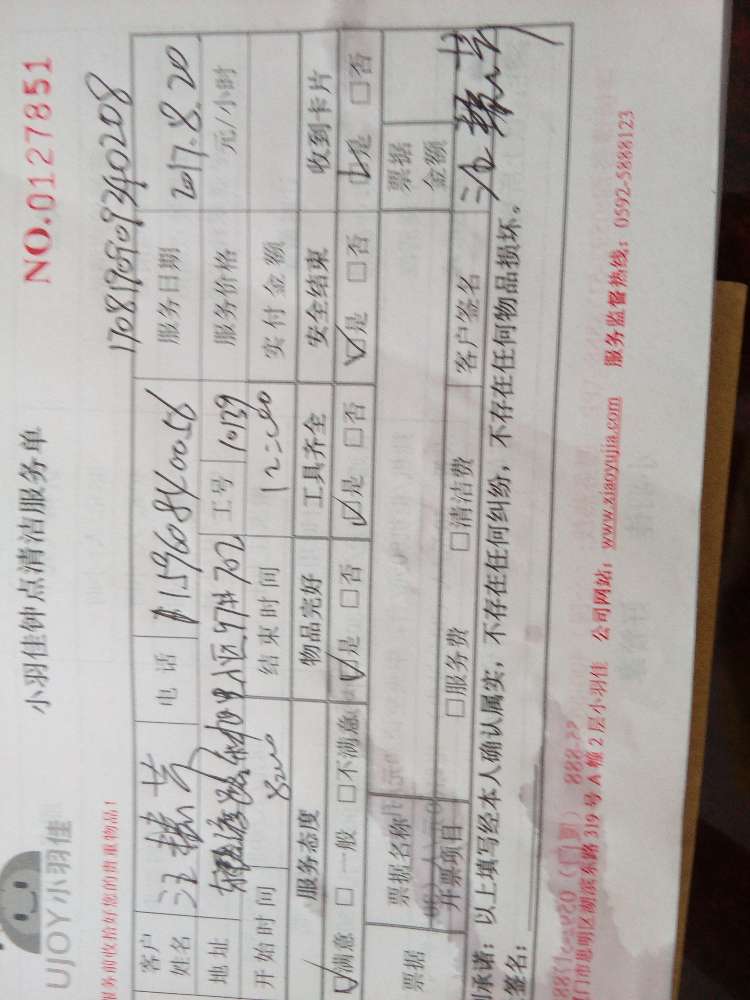 小羽佳钟点清洁服务单
NO.0127851
UJOY小羽佳
服务前收拾好您的贵重物品!
1708170509340208
客户姓名 电话 15960840058 服务日期 2017.8.20
地址 97# 702 工号 10139 服务价格 元/小时
开始时间 8:00 结束时间 12:00 实付金额
服务态度 物品完好 工具齐全 安全结束 收到卡片
☑满意 □一般 □不满意 ☑是 □否 ☑是 □否 ☑是 □否 ☑是 □否
票据 票据名称 票据金额
开票项目 □服务费 □清洁费 客户签名
承诺：以上填写经本人确认属实，不存在任何纠纷，不存在任何物品损坏。
签名：
门市思明区湖滨东路 319 号 A 幢 2 层小羽佳 公司网站：www.xiaoyujia.com 服务监督热线：0592-5888123